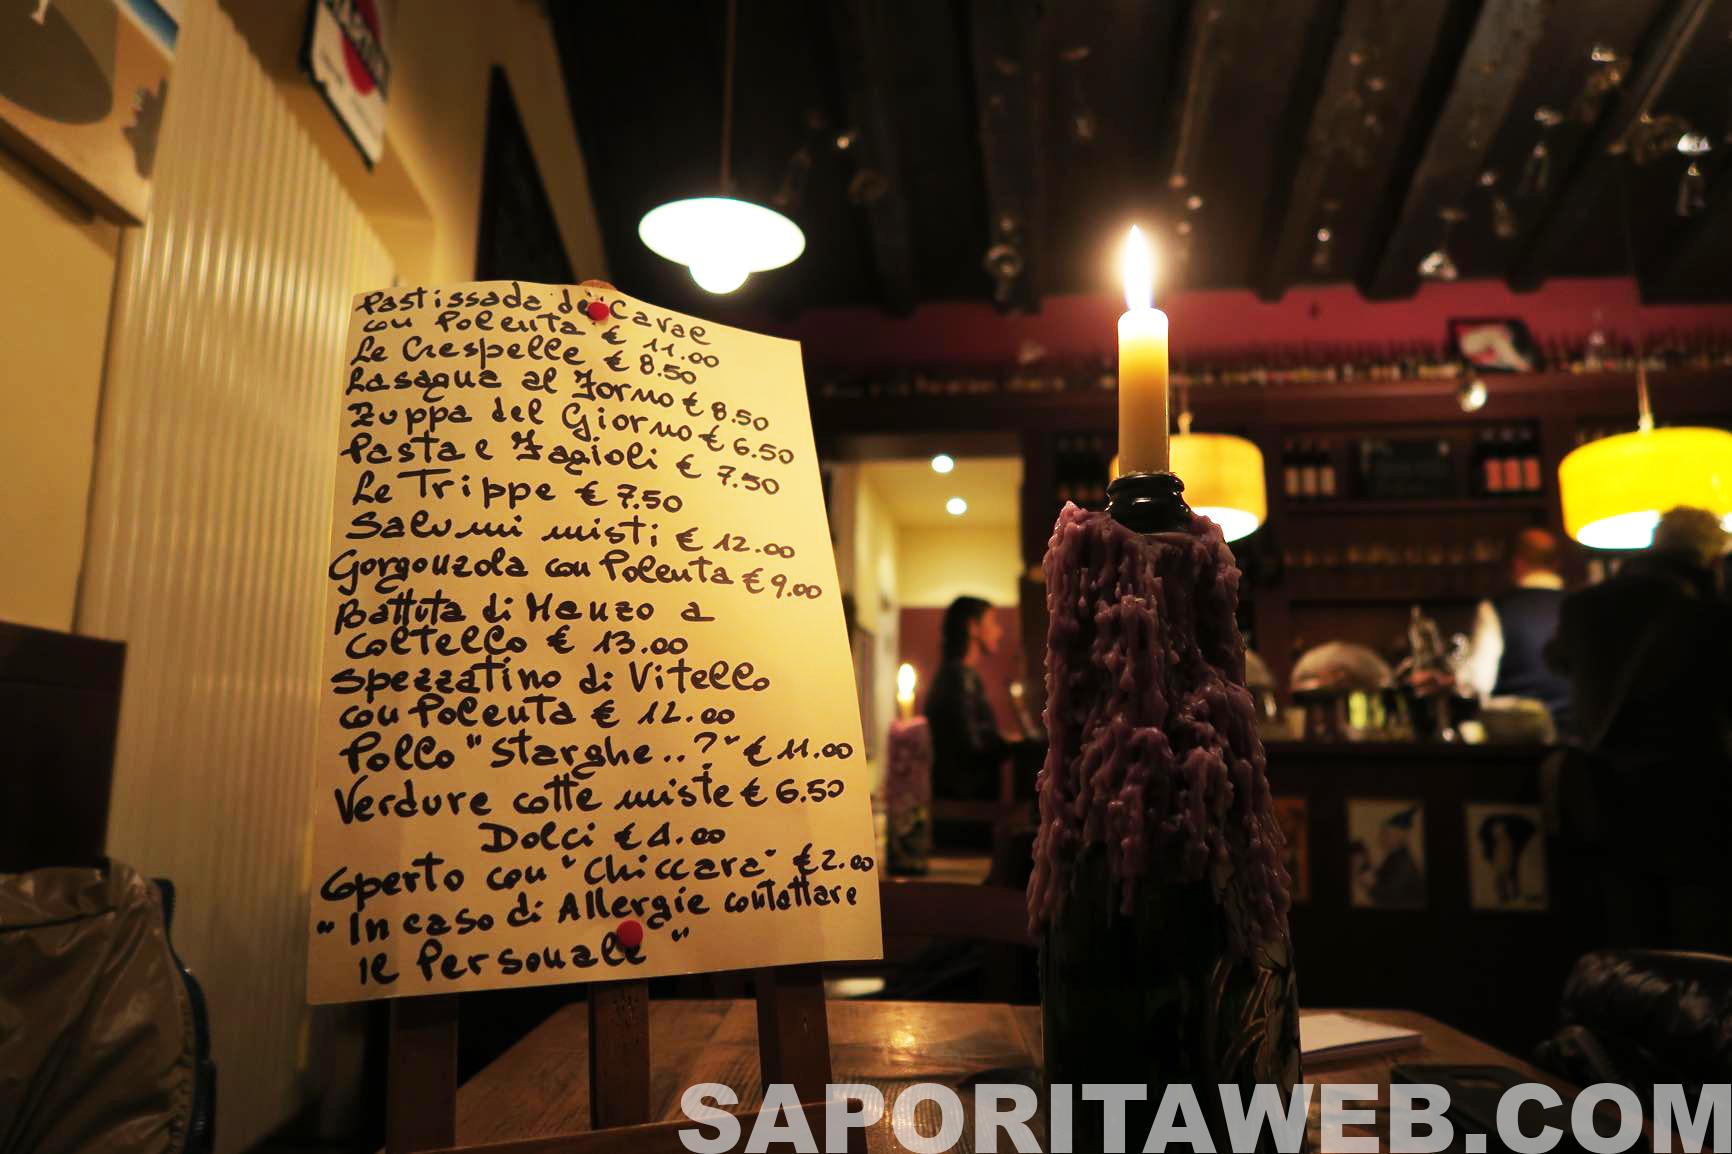 Pastissada de Caval
con Polenta € 11.00
Le Crespelle € 8.50
Lasagna al Forno € 8.50
Zuppa del Giorno € 6.50
Pasta e Fagioli € 7.50
Le Trippe € 7.50
Salumi misti € 12.00
Gorgonzola con Polenta € 9.00
Battuta di Manzo a
Coltello € 13.00
Spezzatino di Vitello
con Polenta € 12.00
Pollo "Starghe..?" € 11.00
Verdure cotte miste € 6.50
Dolci € 4.00
Coperto con "Chiccara" € 2.00
"In caso di Allergie contattare
il Personale"
SAPORITAWEB.COM